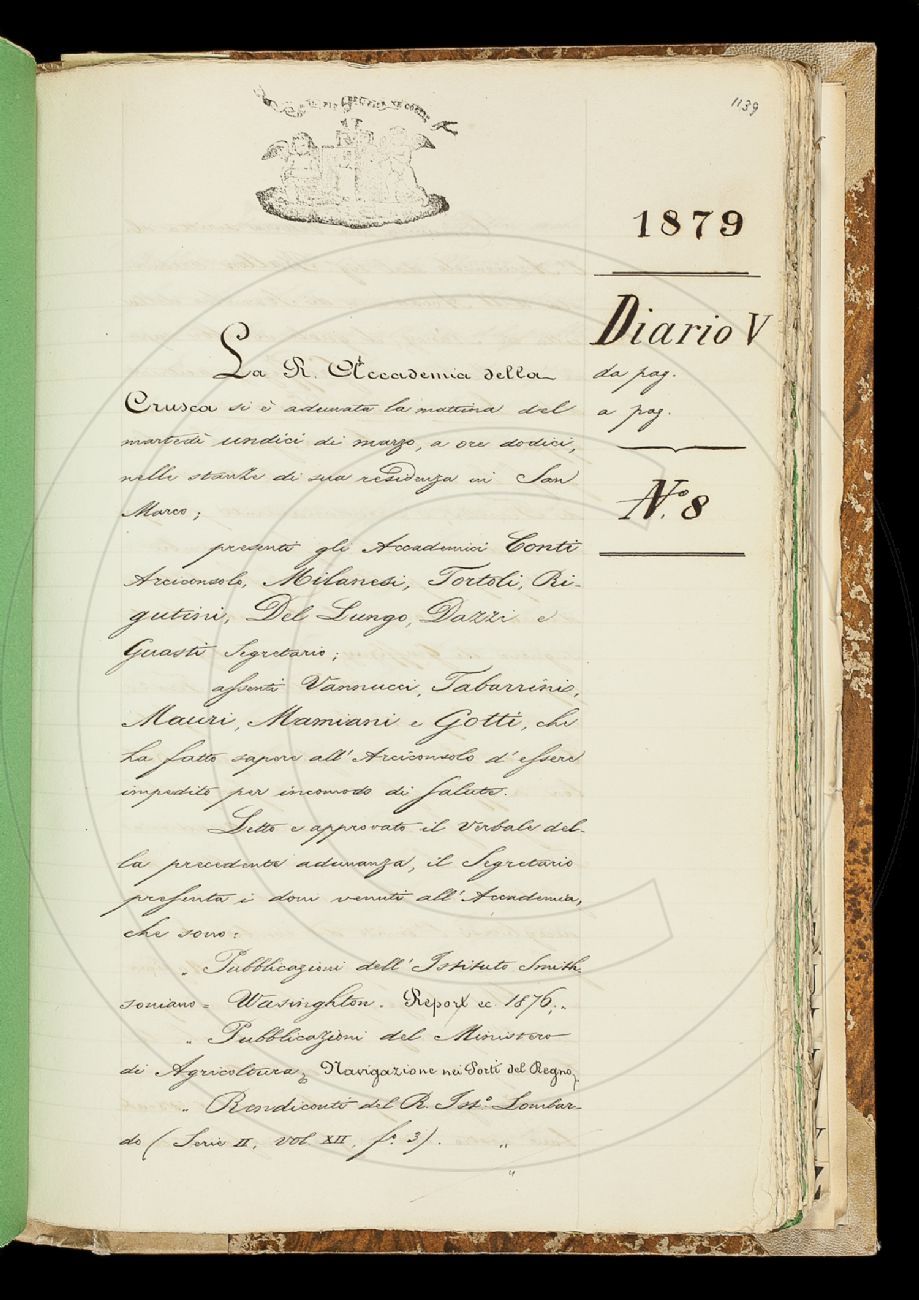 1139
1879
Diario V
da pag.
a pag.
N.º 8
La R. Accademia della
Crusca si è adunata la mattina del
martedì undici di marzo, a ore dodici,
nelle stanze di sua residenza in San
Marco;
presenti gli Accademici Conti
Arciconsolo, Milanesi, Tortoli, Ri-
gutini, Del Lungo, Dazzi e
Guasti Segretario;
assenti Vannucci, Tabarrini,
Mauri, Mamiani e Gotti, che
ha fatto sapere all'Arciconsolo d'essere
impedito per incomodo di salute.
Letto e approvato il Verbale del-
la precedente adunanza, il Segretario
presenta i doni venuti all'Accademia,
che sono:
„ Pubblicazioni dell'Istituto Smith-
soniano = Wasinghton. Report ec. 1876; „
„ Pubblicazioni del Ministero
di Agricoltura; Navigazione nei Porti del Regno;
„ Rendiconti del R. Ist.º Lombar-
do (Serie II, vol. XII, f.º 3). „